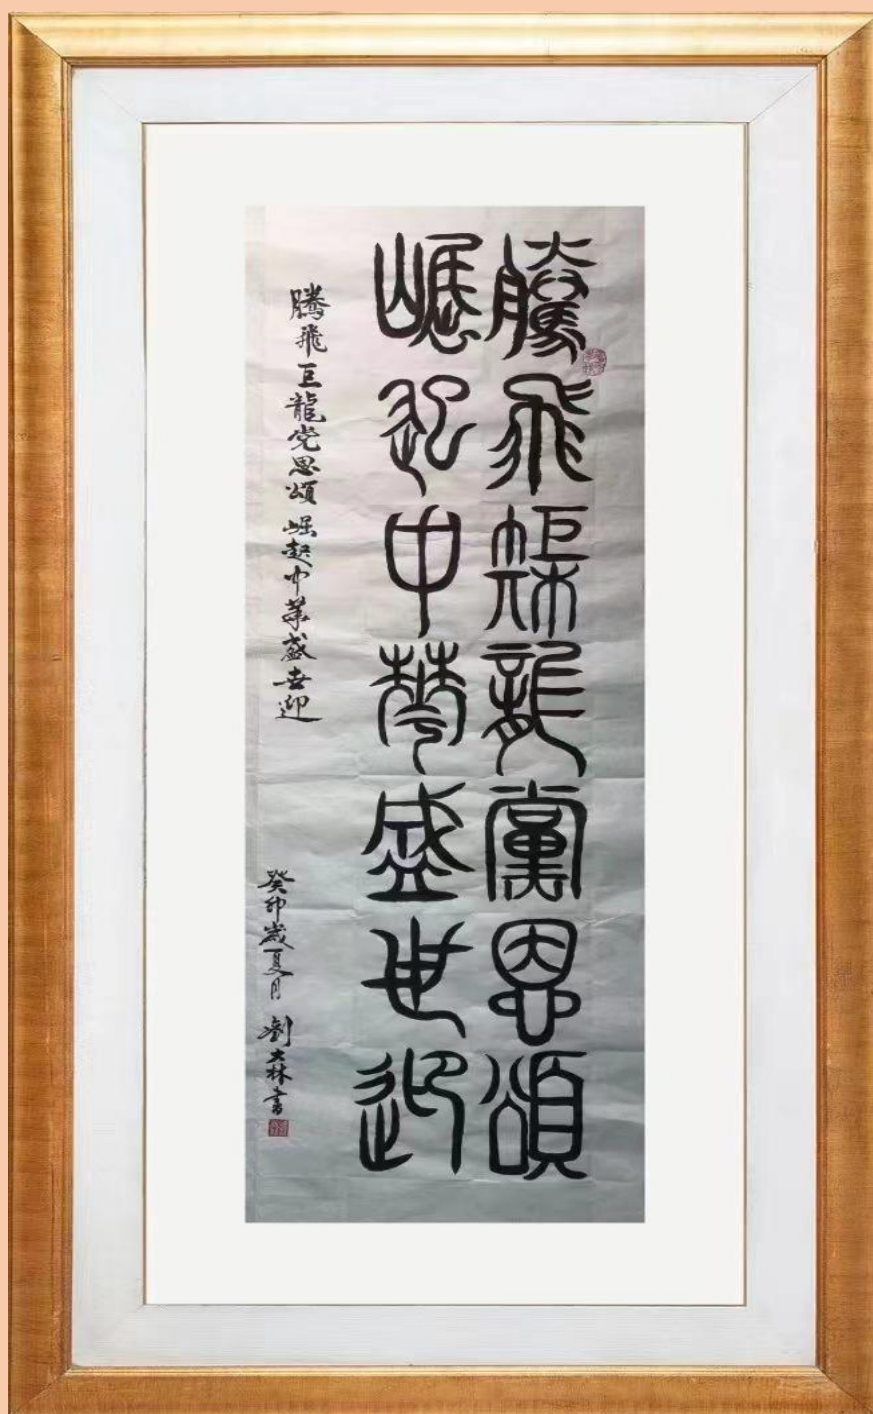 騰飛巨龍黨恩頌
崛起中華盛世迎
騰飛巨龍党恩頌崛起中華盛世迎
癸卯歲夏月 劉大林書